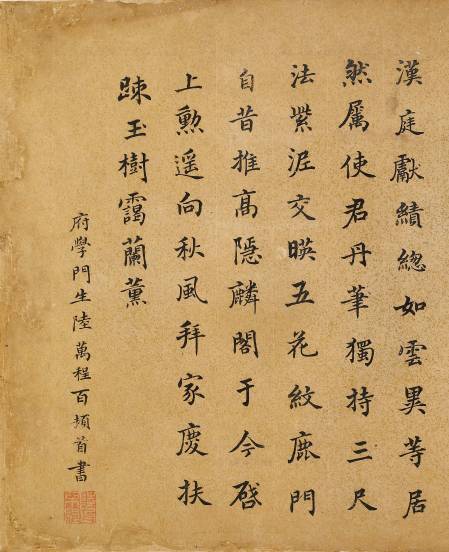 漢庭獻績緫如雲異等居
然屬使君丹筆獨持三尺
法紫泥交暎五花紋鹿門
自昔推高隱麟閣于今啓
上勲遥向秋風拜家慶扶
踈玉樹靄蘭薰
府學門生陸萬程百頓首書